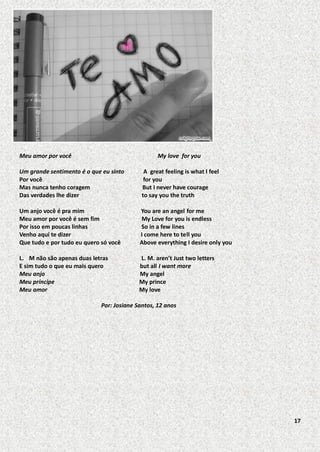 TE AMO
Meu amor por você
My love for you
Um grande sentimento é o que eu sinto
Por você
Mas nunca tenho coragem
Das verdades lhe dizer
A great feeling is what I feel
for you
But I never have courage
to say you the truth
Um anjo você é pra mim
Meu amor por você é sem fim
Por isso em poucas linhas
Venho aqui te dizer
Que tudo e por tudo eu quero só você
You are an angel for me
My Love for you is endless
So in a few lines
I come here to tell you
Above everything I desire only you
L. M não são apenas duas letras
E sim tudo o que eu mais quero
Meu anjo
Meu príncipe
Meu amor
L. M. aren't Just two letters
but all I want more
My angel
My prince
My love
Por: Josiane Santos, 12 anos
17